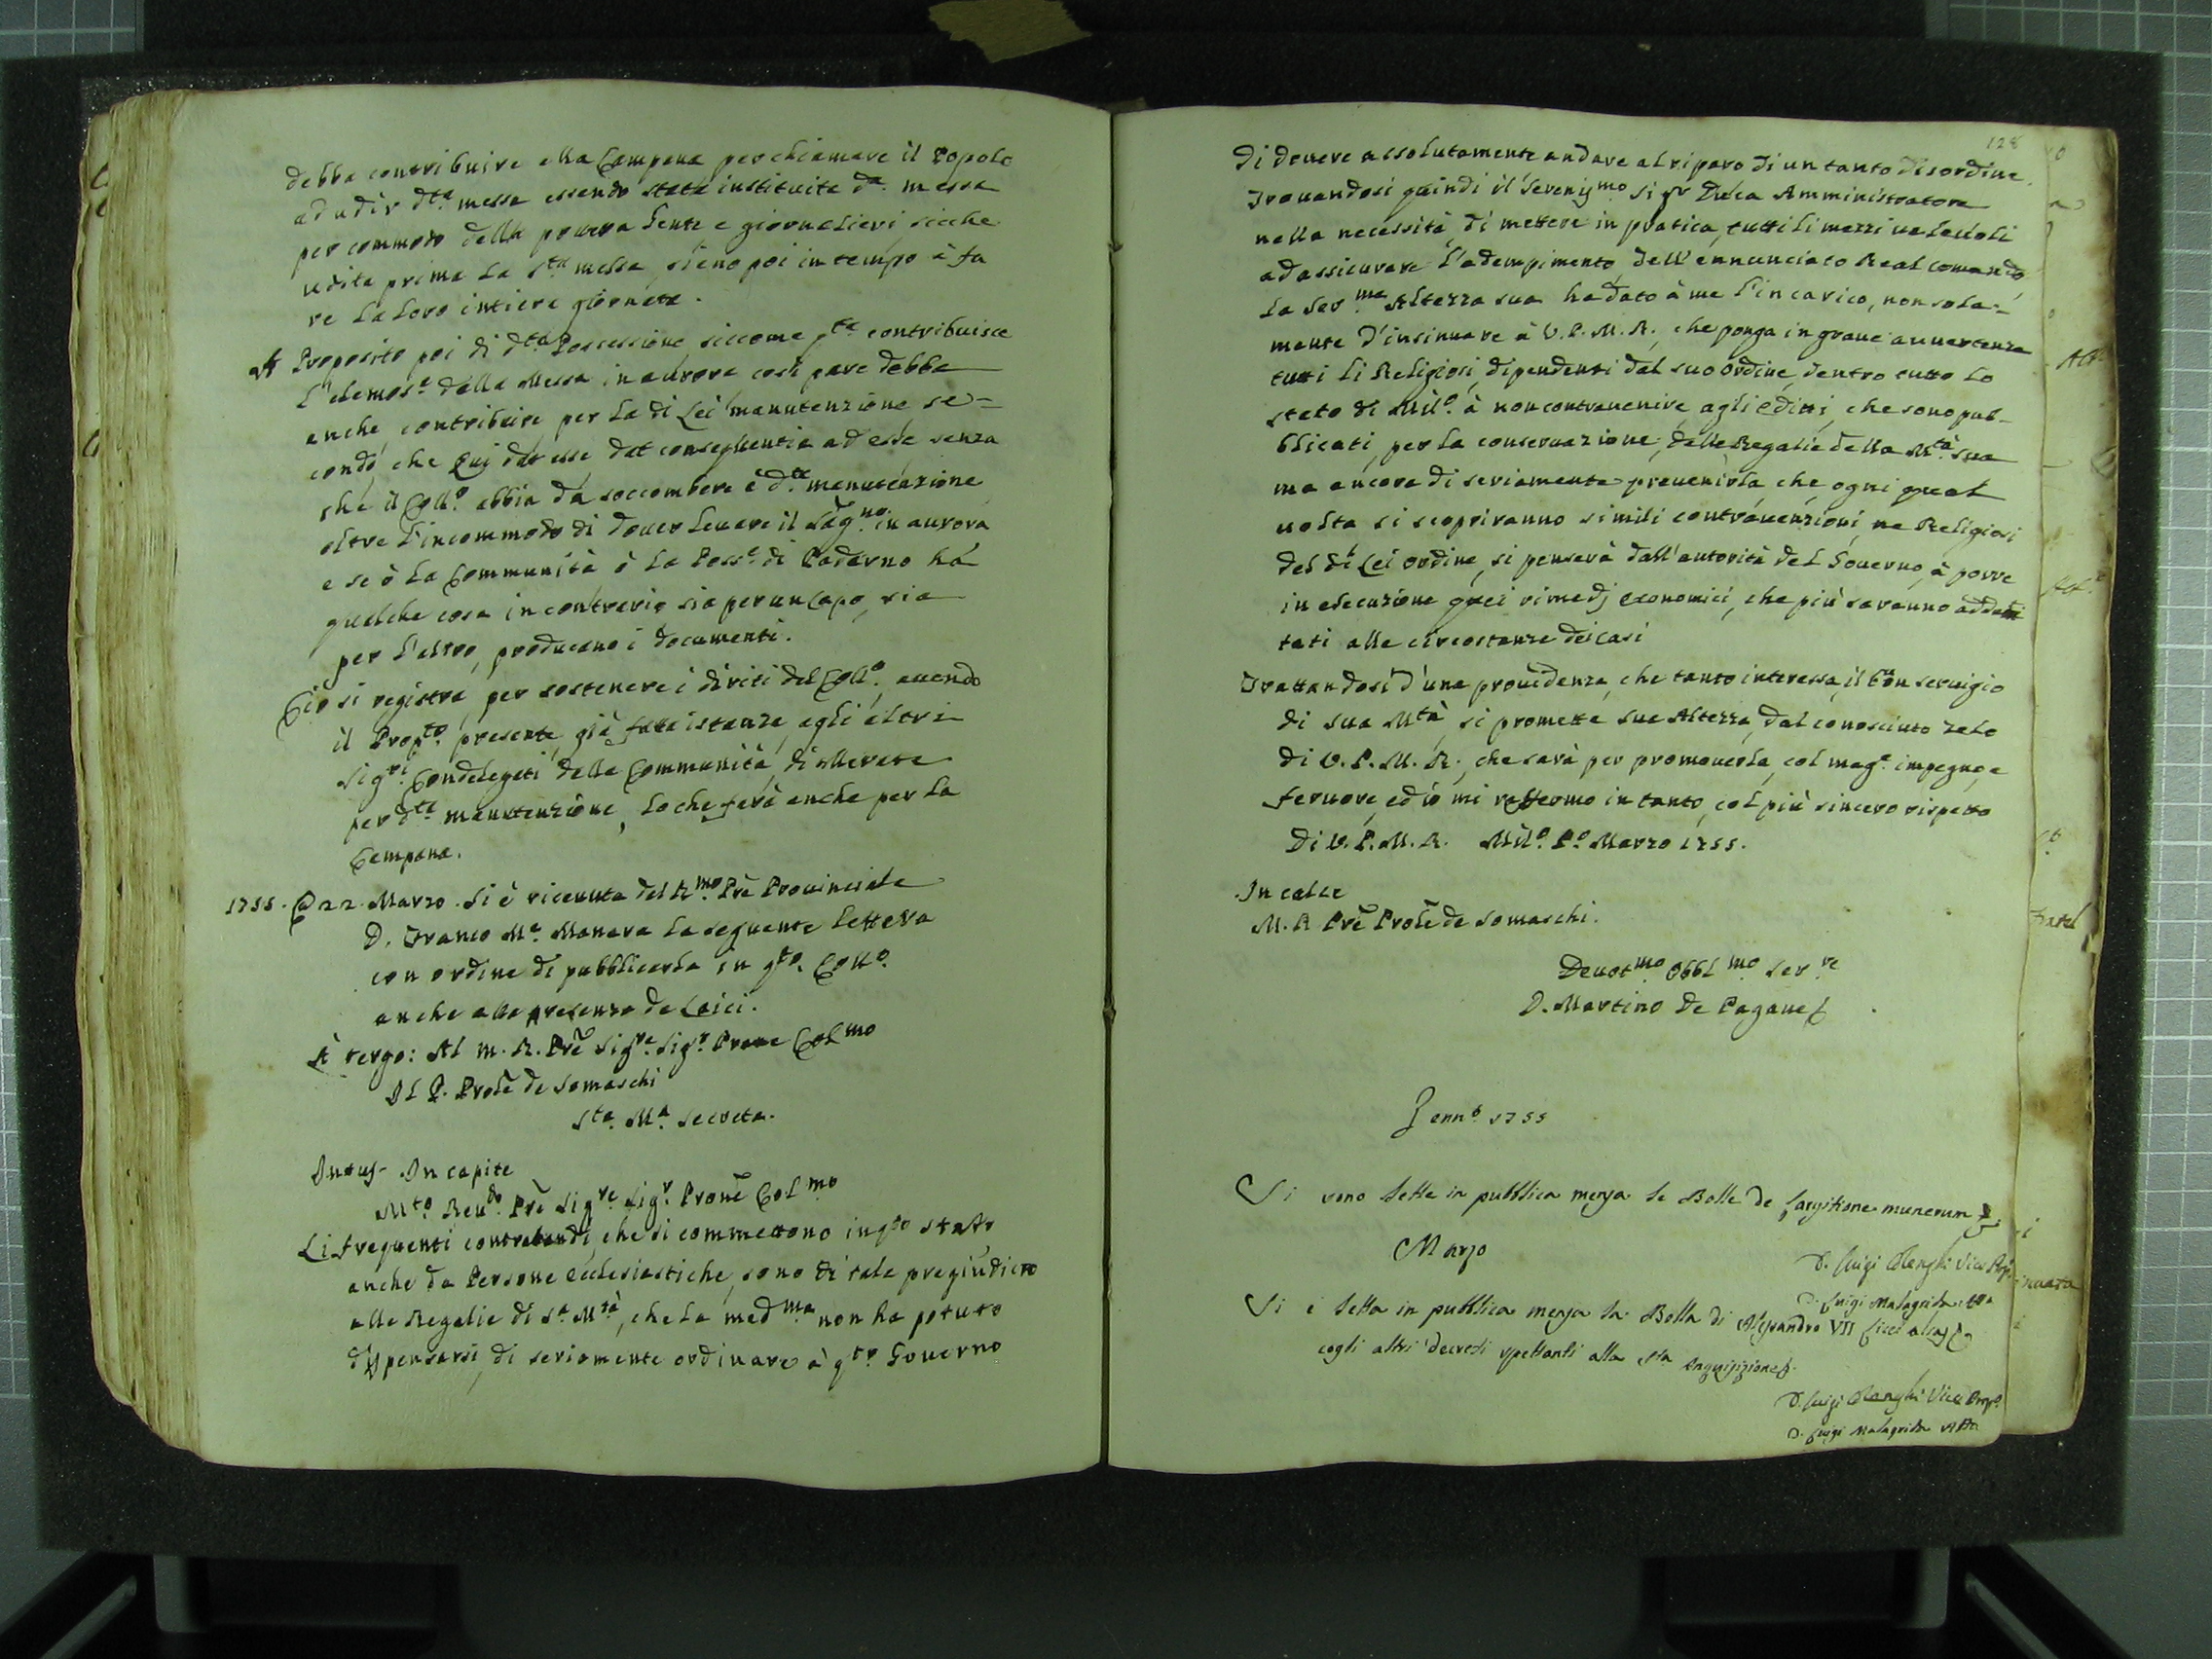 debba contribuire alla Campana per chiamare il Popolo
ad udir dta messa essendo stata instituita da messa
per commodo della povera Gente e giornalieri, sicche
udita prima la Sta messa, sieno poi in tempo à fa
re la loro intiera giornata.
A Proposito poi di dta Possessione, siccome qta contribuisce
l'elemosa della Messa in aurora così pare debba
anche contribuire per la di Lei manutenzione se=
condo che Qui dat esse dat consequentia ad esse senza
che il Collo abbia da soccombere à dta manutenzione
oltre l'incommodo di dover levare il in aurora
e se ò la Communità ò la Posse di Paderno ha
qualche cosa in contrario sia per un Capo, sia
per l'altro, producano i documenti.
Ciò si registra, per sostenere i diriti del Collo, avendo
il Propto presente, già fatta istanza, agli altri
Sigri Condelegati della Communità, di Merate
per dta manutenzione, lo che farà anche per la
Campana.
1755. @ 22. Marzo. Si è ricevuta del Rmo Prè Provinciale
D. Franco Ma Manara la seguente lettera
con ordine di pubblicarla in qto Collo
anche alla presenza de Laici.
À tergo: Al M. R. Prè Sigre Sigr Prone Colmo
Il P. Prole de Somaschi
Sta Ma Secreta.
Intus - In capite
Mto Revdo Prè Sigre Sigr Prone Colmo
Li frequenti contrabandi, che si commettono in qto stato
anche da Persone Ecclesiastiche, sono di tale pregiudicio
alle Regalie di Sa Mtà, che la medma non ha potuto
dispensarsi, di seriamente ordinare à qto Governo
128
di dovere assolutamente andare al riparo di un tanto disordine.
Trovandosi quindi il Serenismo Sigr Duca Amministratore
nella necessità, di mettere in pratica, tutti li mezzi valevoli
ad assicurare l'adempimento, dell'ennunciato Real comando,
la Serma Altezza sua ha dato à me l'incarico, non sola=
mente d'insinuare à V. P. M. R., che ponga in grave avvertenza
tutti li Religiosi, dipendenti dal suo ordine, dentro tutto lo
stato di Milo à non contravenire, agli editti, che sono pub-
blicati, per la conservazione, delle Regalie della Mtà sua
ma ancora di seriamente prevenirla, che ogni qual
volta si scopriranno simili contravenzioni, ne Religiosi
del di Lei ordine, si penserà dall'autorità del Governo, à porre
in esecuzione quei rimedj economici, che più saranno addatt
tati alle circostanze dei casi
Trattandosi d'una providenza, che tanto interessa, il buon servigio
di sua Mtà, si promette sua Altezza, dal conosciuto zelo
di V. P. M. R., che sarà per promoverla, col mage impegno, e
fervore, ed io mi raffermo in tanto, col più sincero rispetto
di V. P. M. R. Milo Po Marzo 1755.
In calce
M. R. Prè Prole de Somaschi.
Devotmo Obblmo Serre
D. Martino De Paganes
Jenno 1755
Si sono lette in pubblica mensa le Bolle de largitione munerum
Marzo
D. Luigi Vice Prepo
D. Luigi Malagrida Atto
Si è letta in pubblica mensa la Bolla di Alessandro VII Licet alias
cogli altri decreti spettanti alla Sta Inquisizione.
D. Luigi Vice Prepo
D. Luigi Malagrida Atto